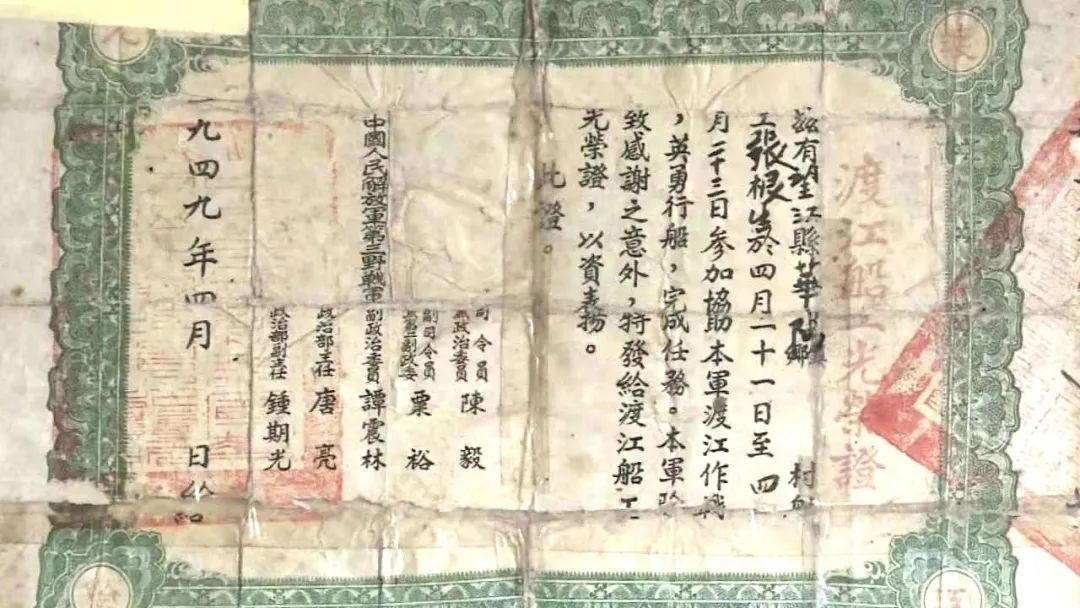 渡江船工光榮證
茲有望江縣華陽鄉 村船
工張根生於四月二十一日至四
月二十三日參加協助本軍渡江作戰
，英勇行船，完成任務。本軍除
致感謝之意外，特發給渡江船工
光榮證，以資表揚。
此證。
中國人民解放軍第三野戰軍
司令員兼政治委員 陳毅
副司令員兼第二副政委 粟裕
副政治委員 譚震林
政治部主任 唐亮
政治部副主任 鍾期光
一九四九年四月 日